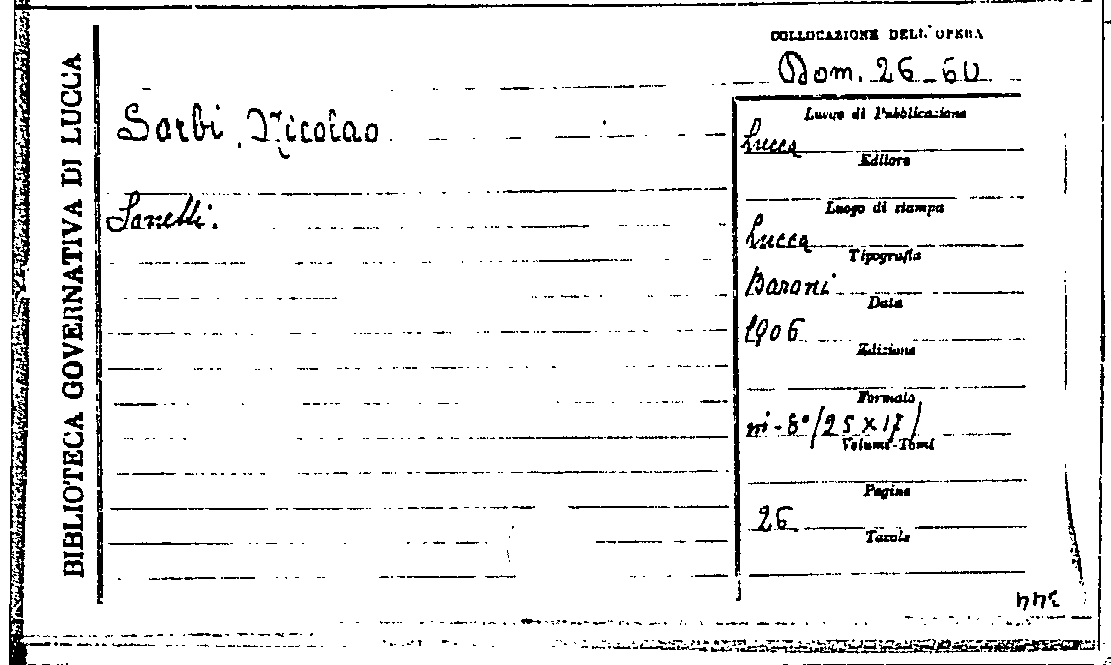 BIBLIOTECA GOVERNATIVA DI LUCCA
COLLOCAZIONE DELL'OPERA
Dom. 26-60
Sarbi, Nicolao
Sonetti.
Luogo di Pubblicazione
Lucca
Editore
Luogo di stampa
Lucca
Tipografia
Baroni
Data
1906
Edizione
Formato
in-8° (25 x 17)
Volumi-Tomi
Pagine
26
Tavole